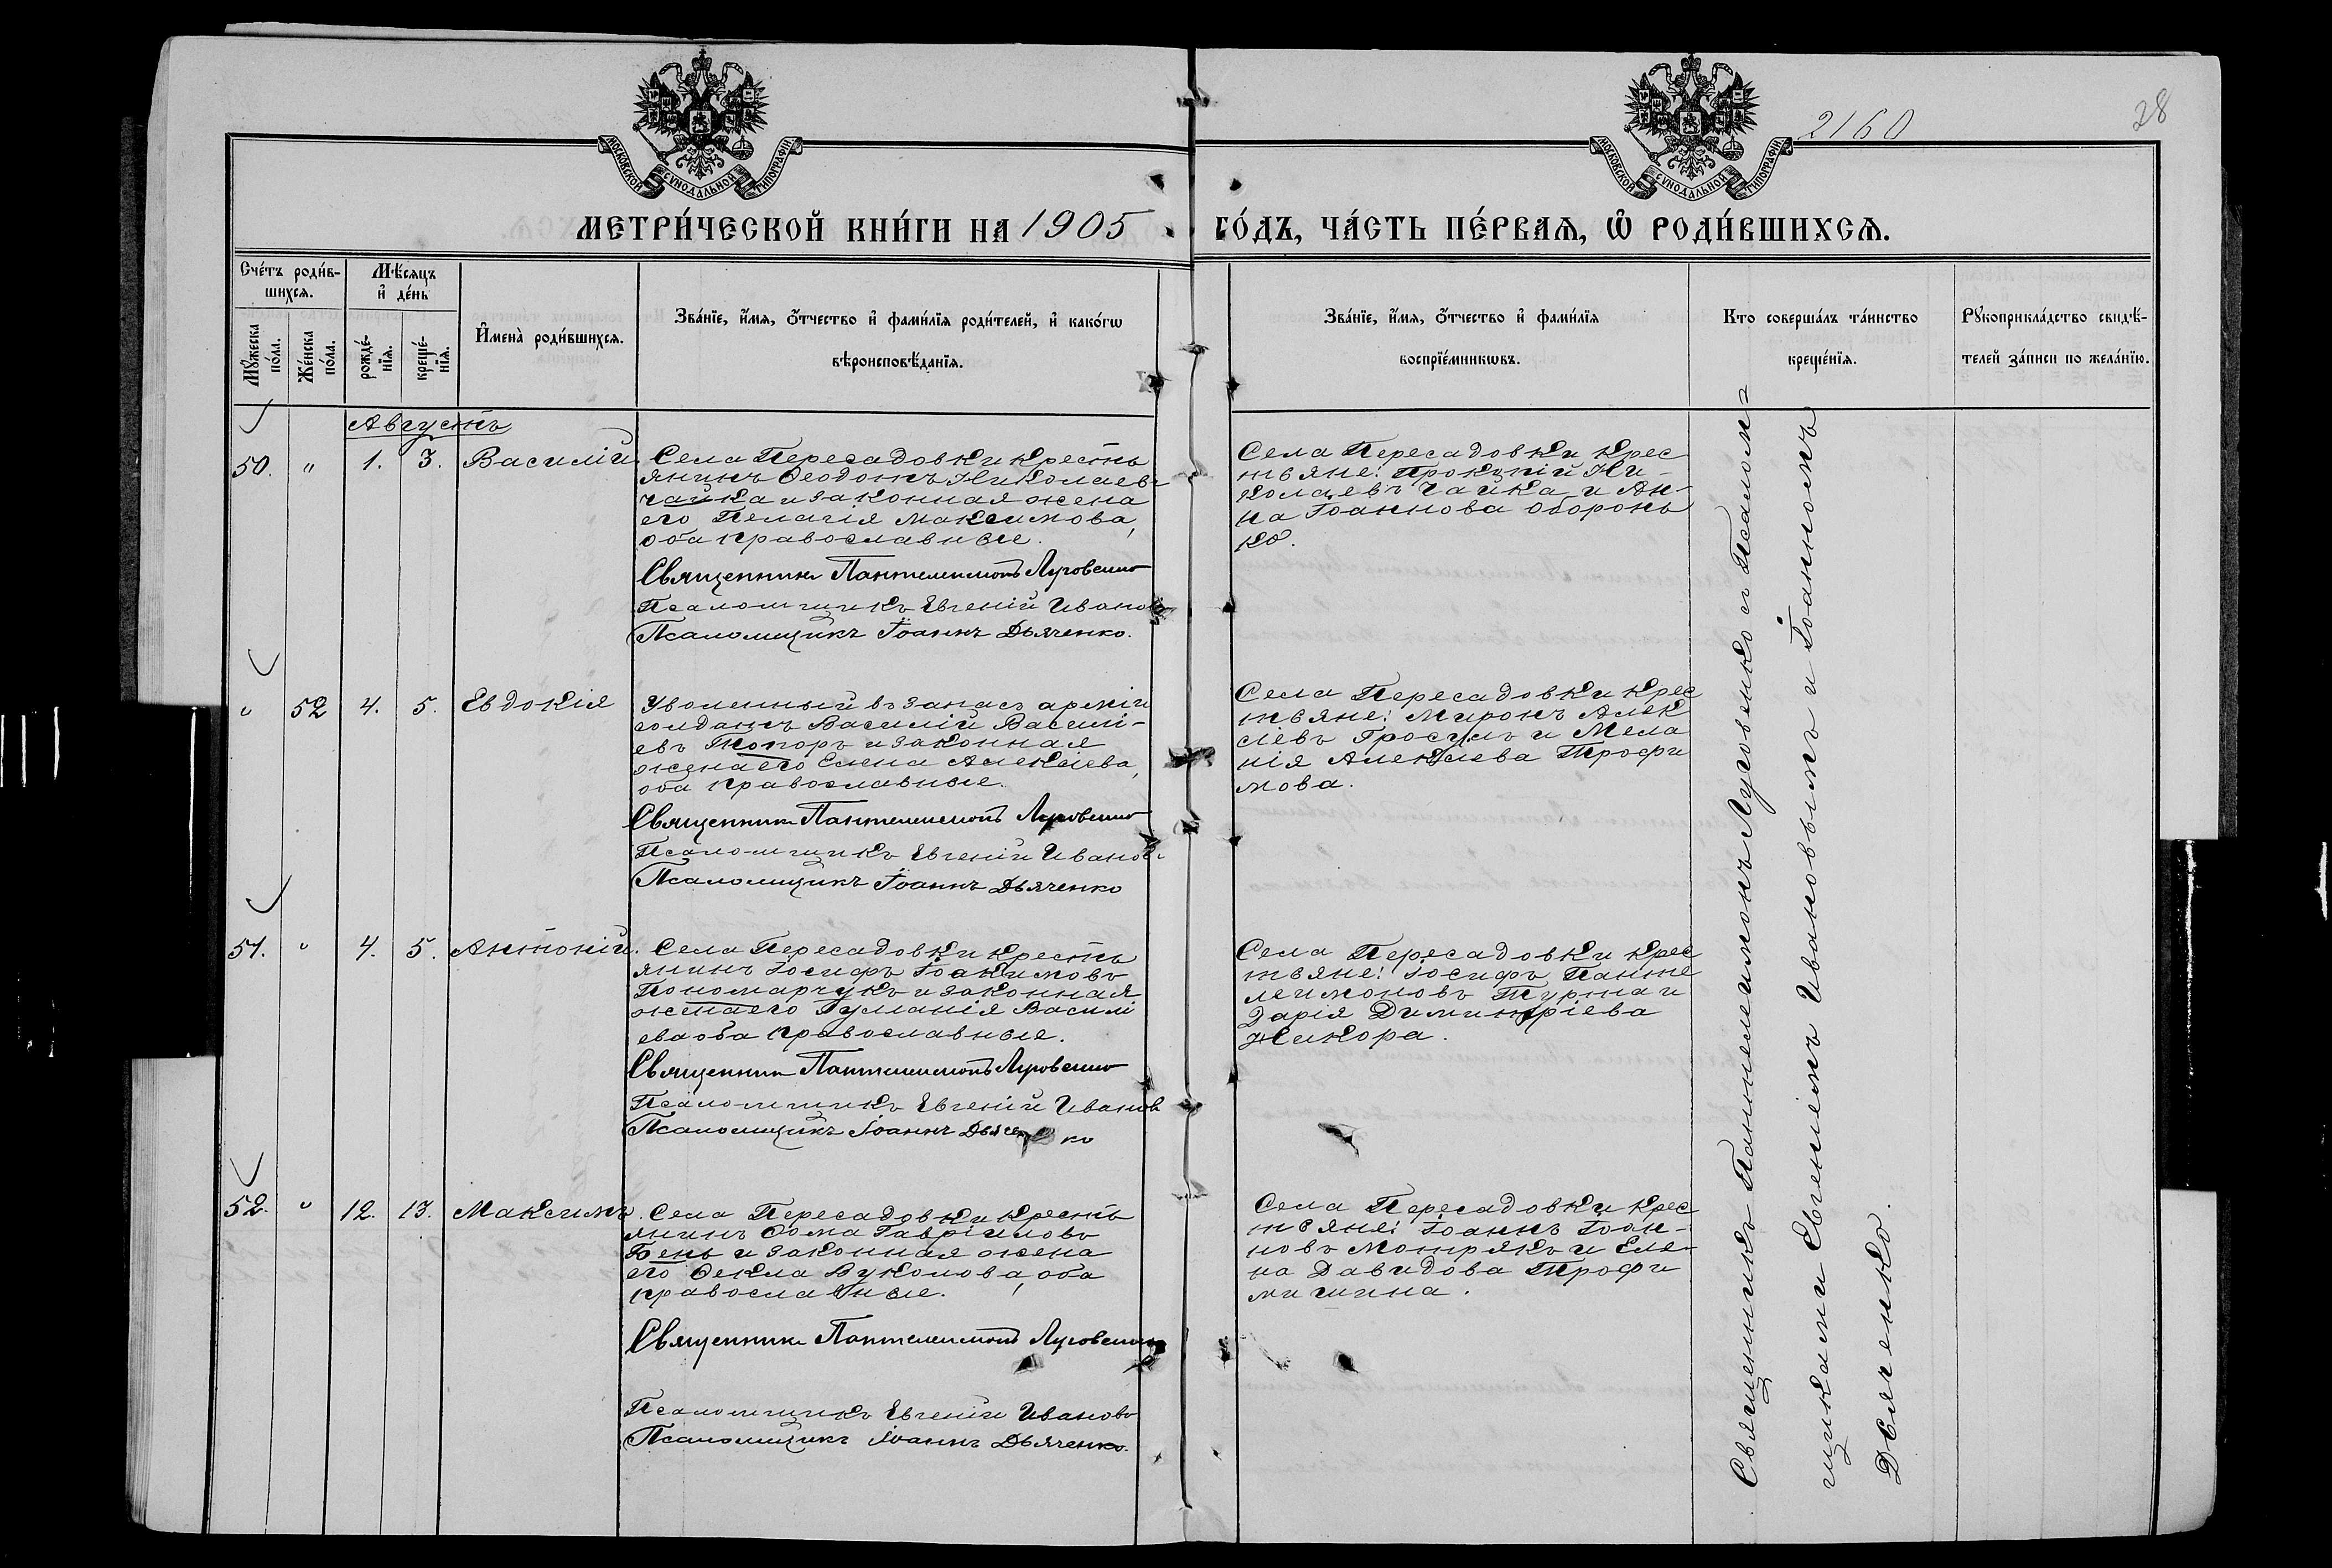 2160
28
МОСКОВСКОЙ СѴНОДАЛЬНОЙ ТИПОГРАФІИ
МОСКОВСКОЙ СѴНОДАЛЬНОЙ ТИПОГРАФІИ
МЕТРИ́ЧЕСКОЙ КНИ́ГИ НА 1905 ГО́ДЪ, ЧА́СТЬ ПЕ́РВАѦ, Ѽ РОДИ́ВШИХСѦ.
Сче́тъ роди́в-
шихсѧ.
Мѣ́сяцъ
и҆ де́нь
Мꙋ́жеска
по́ла.
Же́нска
по́ла.
рожде́-
нїѧ.
креще́-
нїѧ.
И҆мена̀ роди́вшихсѧ.
Зва́нїе, и҆́мѧ, ѻ҆́тчество и҆ фами́лїѧ роди́телей, и҆ како́гѡ
вѣроисповѣ́данїѧ.
Зва́нїе, и҆́мѧ, ѻ҆́тчество и҆ фами́лїѧ
воспрїе́мникѡвъ.
Кто соверша́лъ та́инство
креще́нїѧ.
Рꙋкоприкла́дство свидѣ́-
телей за́писи по жела́нїю.
Августъ
50. " 1. 3. Василій.
Села Пересадовки кресть
янинъ Ѳеодотъ Николаевъ
Чайка и законная жена
его Пелагія Максимова,
оба православные.
Священникъ Пантелеимонъ Луговенко
Псаломщикъ Евгеній Ивановъ
Псаломщикъ Іоаннъ Дьяченко.
Села Пересадовки крес
тьяне: Прокопій Ни-
колаевъ Чайка и Ан-
на Іоаннова Оборонь
ко.
" 52 4. 5. Евдокія
Уволенный въ запасъ арміи
солдатъ Василій Василі-
евъ Топоръ и законная
жена его Елена Алексіева,
оба православные.
Священникъ Пантелеимонъ Луговенко
Псаломщикъ Евгеній Ивановъ
Псаломщикъ Іоаннъ Дьяченко
Села Пересадовки крес
тьяне: Миронъ Алек
сіевъ Гросулъ и Мела
нія Алексіева Трофи
мова.
51. " 4. 5. Антоній.
Села Пересадовки кресть
янинъ Іосифъ Іоакимовъ
Пономарчукъ и законная
жена его Гуманія Василі
ева оба православные.
Священникъ Пантелеимонъ Луговенко
Псаломщикъ Евгеній Ивановъ
Псаломщикъ Іоаннъ Дьяченко
Села Пересадовки крес
тьяне: Іосифъ Панте
леимоновъ Турта и
Дарія Димитріева
52. " 12. 13. Максимъ.
Села Пересадовки кресть
янинъ Ѳома Гавріиловъ
Бень и законная жена
его Ѳекла Вуколова, оба
православные.
Священникъ Пантелеимонъ Луговенко
Псаломщикъ Евгеній Ивановъ
Псаломщикъ Іоаннъ Дьяченко.
Села Пересадовки крес
тьяне: Іоаннъ Іоан-
новъ Мотрякъ и Еле-
на Давидова Трофи
мишина.
Священникъ Пантелеимонъ Луговенко съ Псалом=
щиками Евгеніемъ Ивановымъ и Іоанномъ
Дьяченко.